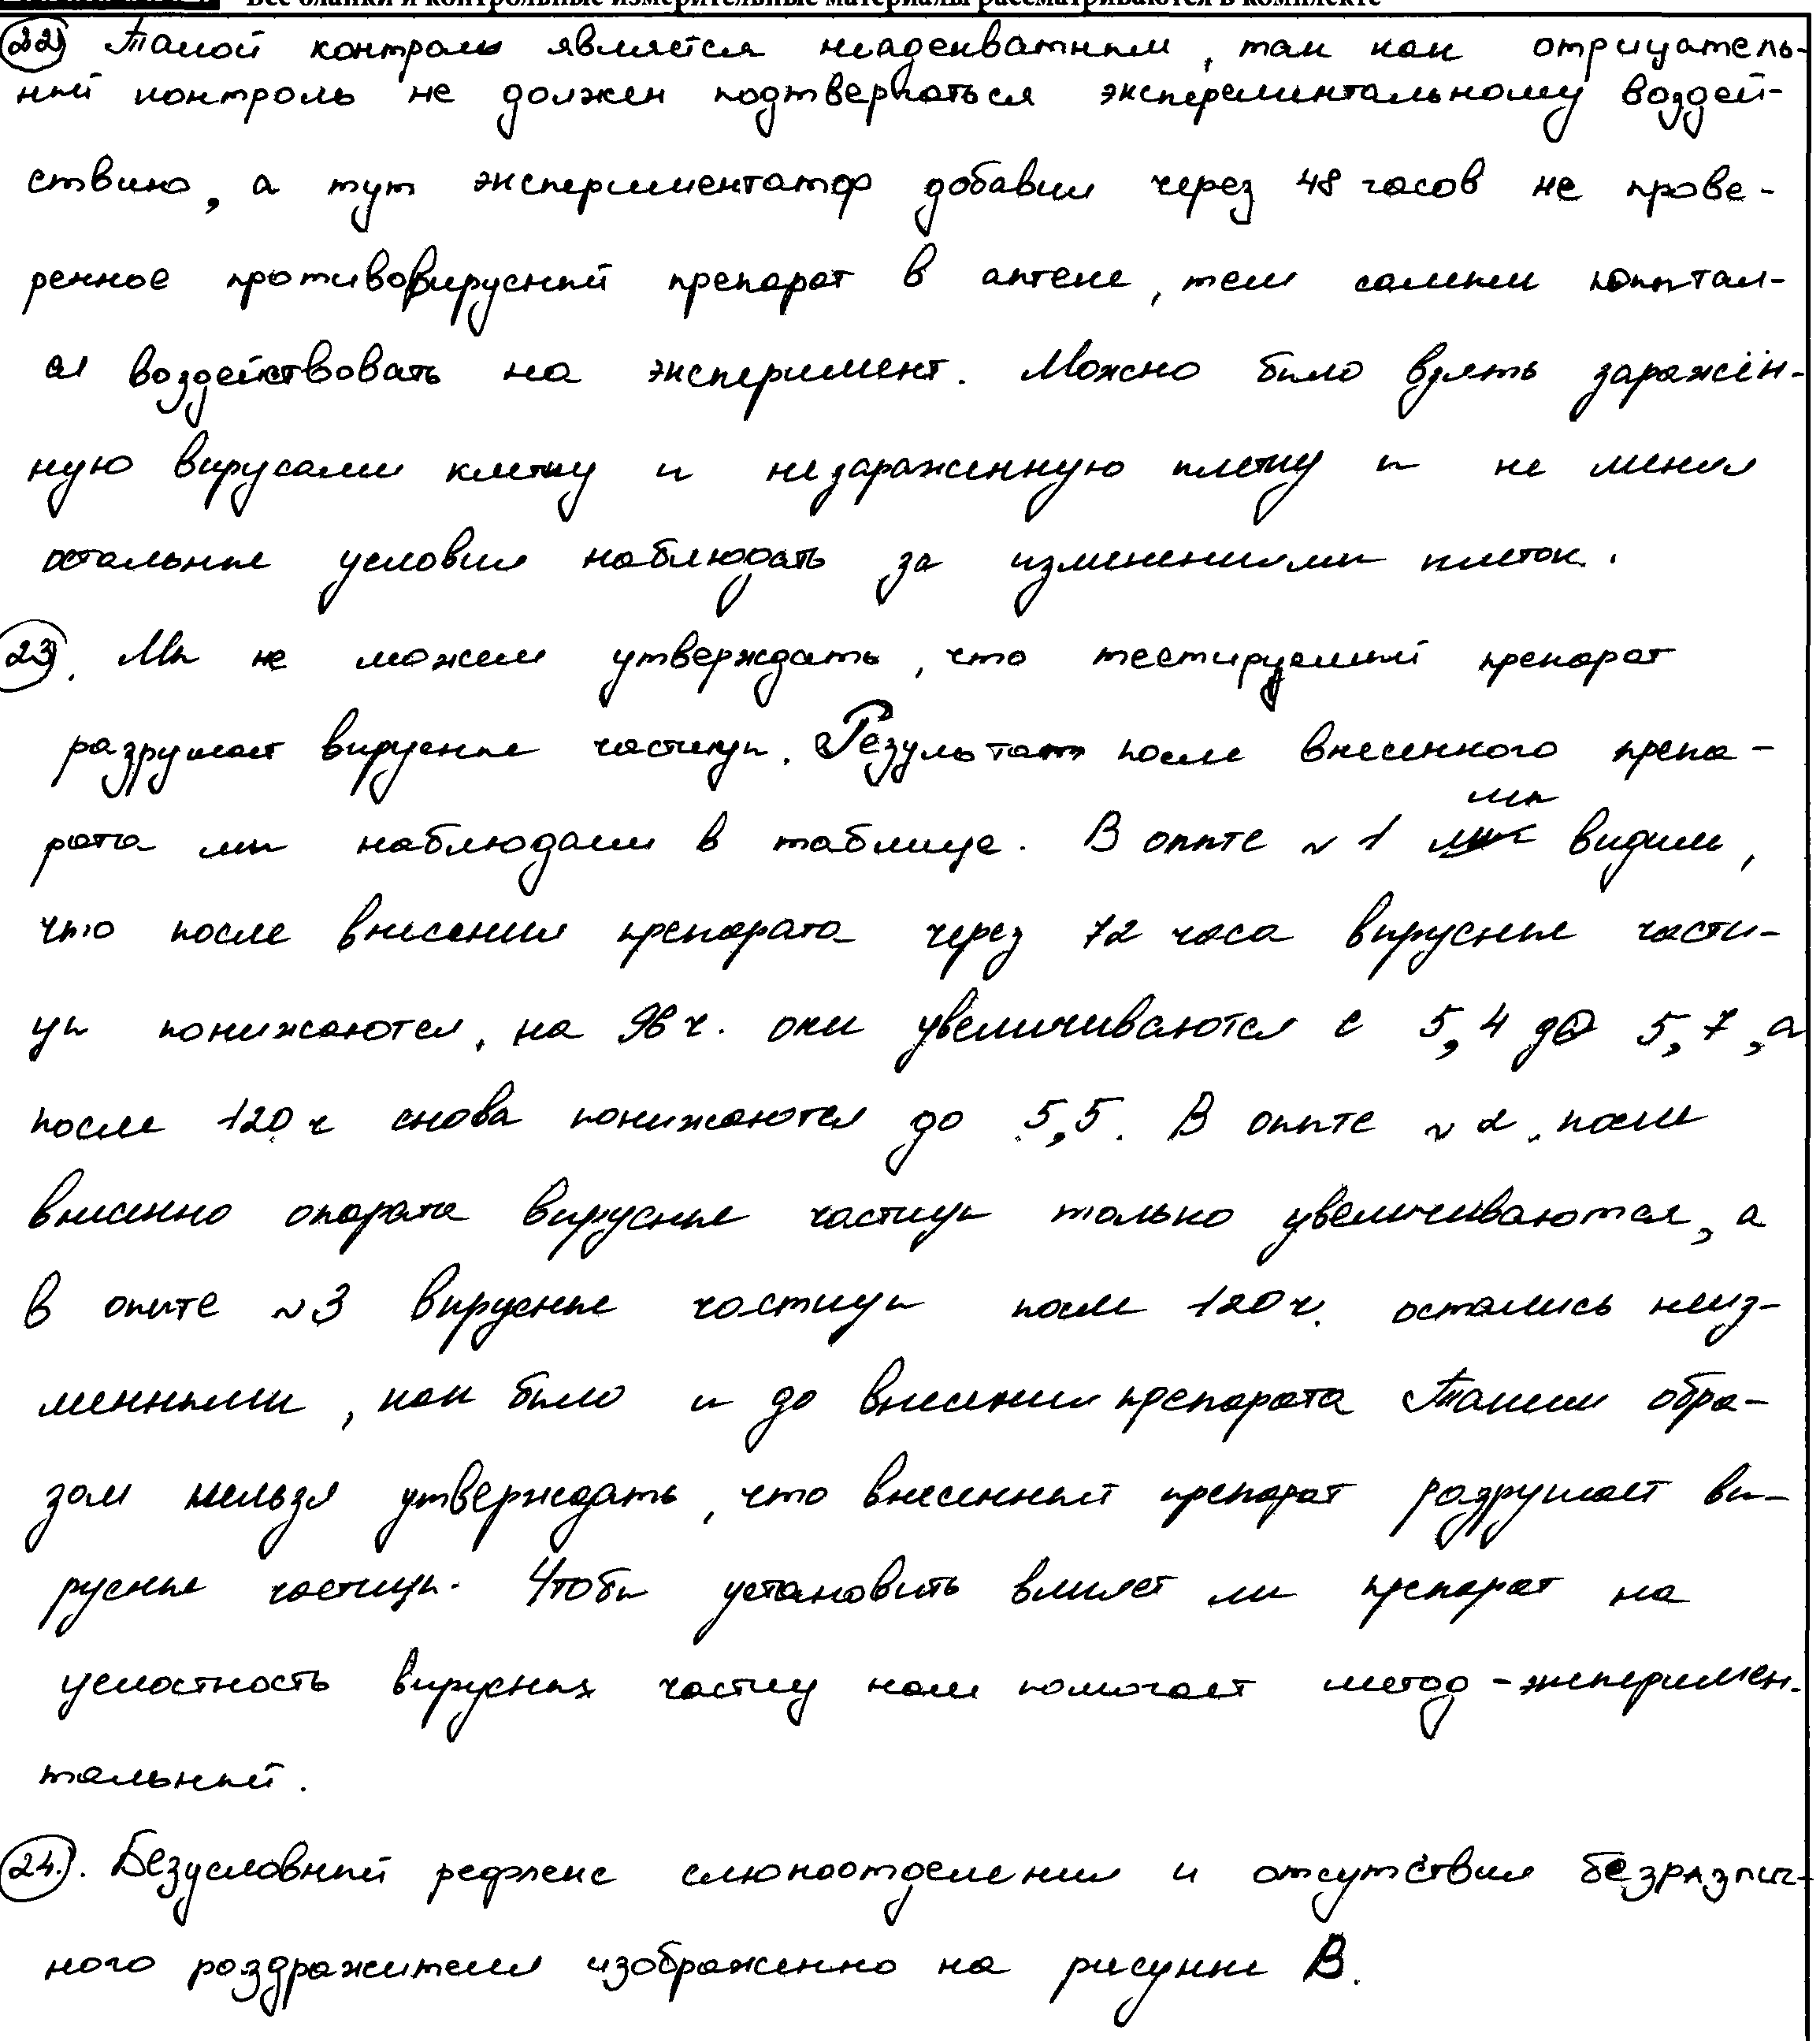 Все бланки и контрольные измерительные материалы рассматриваются в комплекте
22) Такой контроль является неадекватным, так как отрицатель-
ный контроль не должен подтвергаться эксперементальному воздей-
ствию, а тут экспериментатор добавил через 48 часов не прове-
ренное противовирусный препарат в аптеке, тем самым попытал-
ся воздействовать на эксперимент. Можно было взять заражён-
ную вирусами клетку и незараженную клетку и не меняя
остальные условия наблюдать за изменениями клеток.
23). Мы не можем утверждать, что тестируемый препарат
разрушает вирусные частицы. Результат после внесенного препа-
рата мы наблюдаем в таблице. В опыте №1 мы видим,
что после внесения препарата через 72 часа вирусные части-
цы понижаются, на 96 ч. они увеличиваются с 5,4 до 5,7, а
после 120 ч снова понижаются до 5,5. В опыте №2, после
внесенно опарата вирусные частицы только увеличиваются, а
в опыте №3 вирусные частицы после 120 ч. остались неиз-
менными, как было и до внесения препарата Таким обра-
зом нельзя утверждать, что внесенный препарат разрушает ви-
русные частицы. Чтобы установить влияет ли препарат на
целостность вирусных частиц нам помогает метод - эксперимен-
тальный.
24.). Безусловный рефлекс слюноотделения и отсутствия безразлич-
ного раздражителя изображенно на рисунке В.